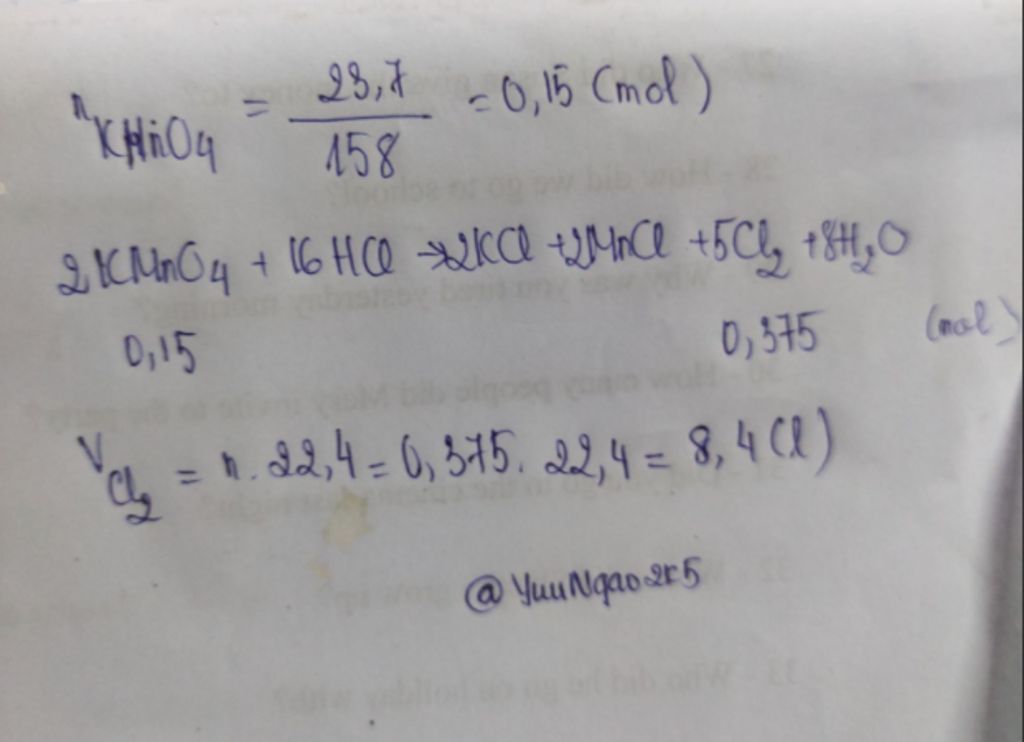 nKMnO4 = 23,7/158 = 0,15 (mol)
2KMnO4 + 16HCl → 2KCl + 2MnCl + 5Cl2 + 8H2O
0,15 0,375 (mol)
VCl2 = n. 22,4 = 0,375. 22,4 = 8,4 (l)
@YuuNgao2k5